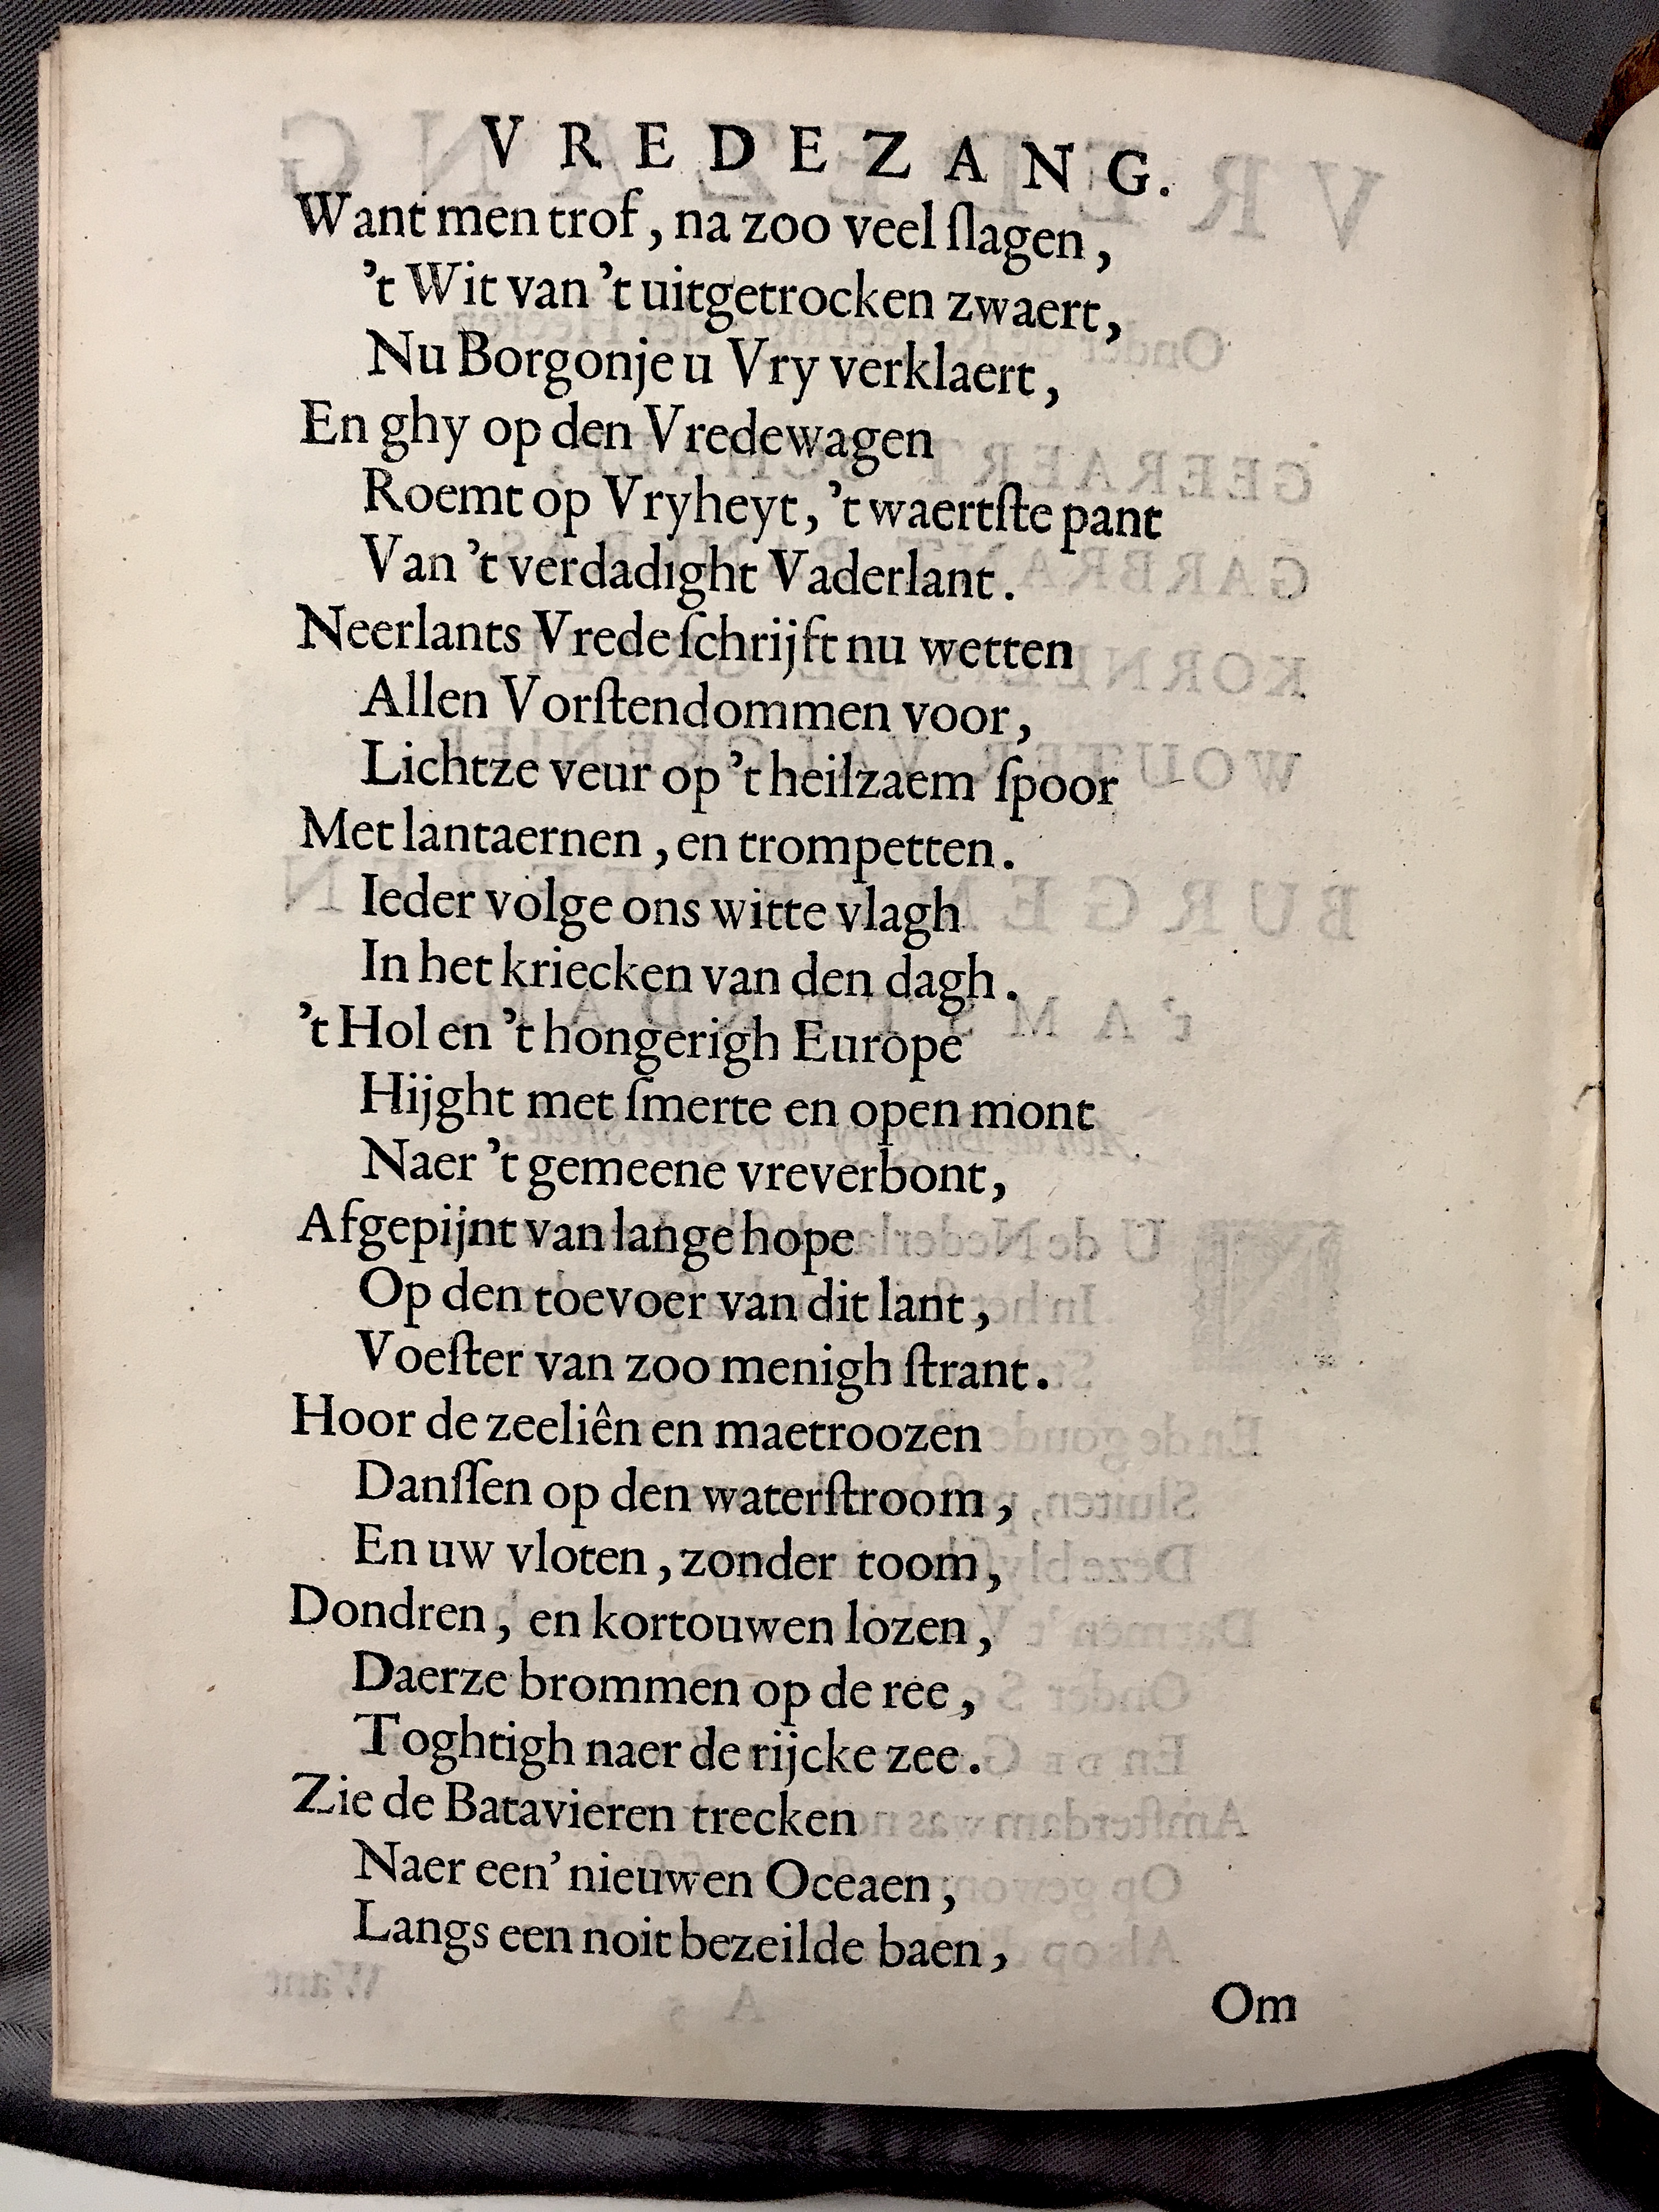 VREDEZANG.
Want men trof, na zoo veel ſlagen,
't Wit van 't uitgetrocken zwaert,
Nu Borgonje u Vry verklaert,
En ghy op den Vredewagen
Roemt op Vryheyt, 't waertſte pant
Van 't verdadight Vaderlant.
Neerlants Vrede ſchrijft nu wetten
Allen Vorſtendommen voor,
Lichtze veur op 't heilzaem ſpoor
Met lantaernen, en trompetten.
Ieder volge ons witte vlagh
In het kriecken van den dagh.
't Hol en 't hongerigh Europe
Hijght met ſmerte en open mont
Naer 't gemeene vreverbont,
Afgepijnt van lange hope
Op den toevoer van dit lant,
Voeſter van zoo menigh ſtrant.
Hoor de zeeliên en maetroozen
Danſſen op den waterſtroom,
En uw vloten, zonder toom,
Dondren, en kortouwen lozen,
Daerze brommen op de ree,
Toghtigh naer de rijcke zee.
Zie de Batavieren trecken
Naer een' nieuwen Oceaen,
Langs een noit bezeilde baen,
Om